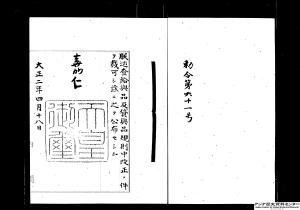 勅令第六十一号
朕近卫給与品及貸与品規則中改正ノ件
ヲ裁可シ茲ニ之ヲ公布セシム
嘉仁
天皇
御璽
大正二年四月十八日
アジア歴史資料センター